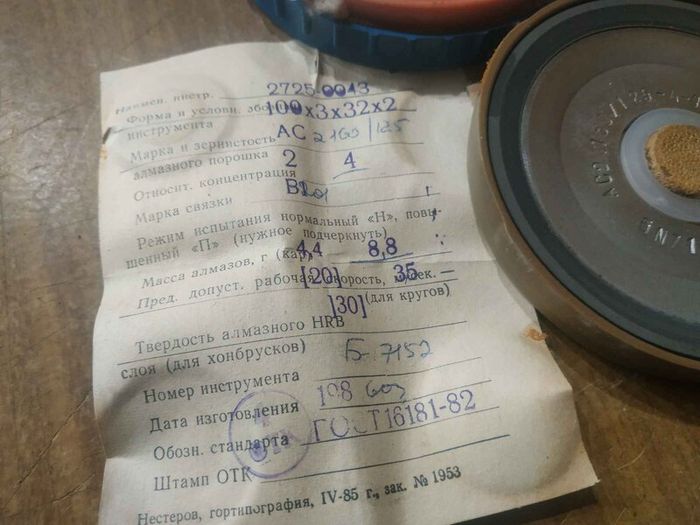 Наимен. инстр. 2725-0043
Форма и условн. 100х3х32х2
инструмента
Марка и зернистость АС2 160/125
алмазного порошка
Относит. концентрация 2 4
Марка связки
Режим испытания нормальный «Н», повы-
шенный «П» (нужное подчеркнуть)
Масса алмазов, г (кар) 4,4 8,8
Пред. допуст. рабочая скорость, м/сек. [20] 35 —
]30] (для кругов)
Твердость алмазного HRB
слоя (для хонбрусков)
Номер инструмента Б 7152
Дата изготовления 198
Обозн. стандарта ГОСТ16181-82
Штамп ОТК
Нестеров, гортипография, IV-85 г., зак. № 1953